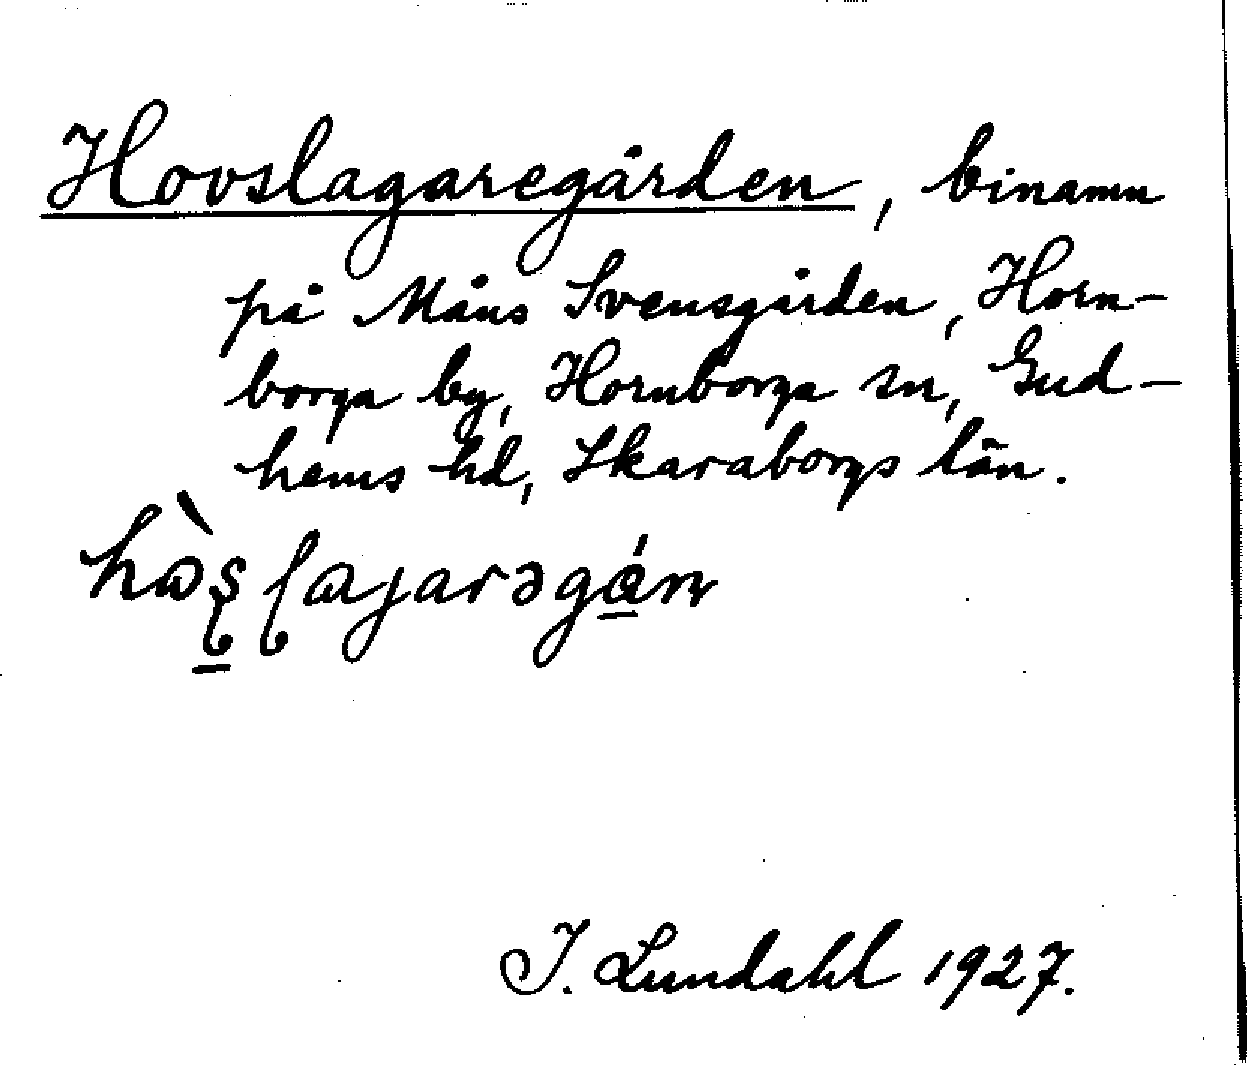 Hovslagaregården, binamn
på Måns Svensgården, Horn-
borga by, Hornborga sn, Gud-
hems hd, Skaraborgs län.
J. Lundahl 1927.